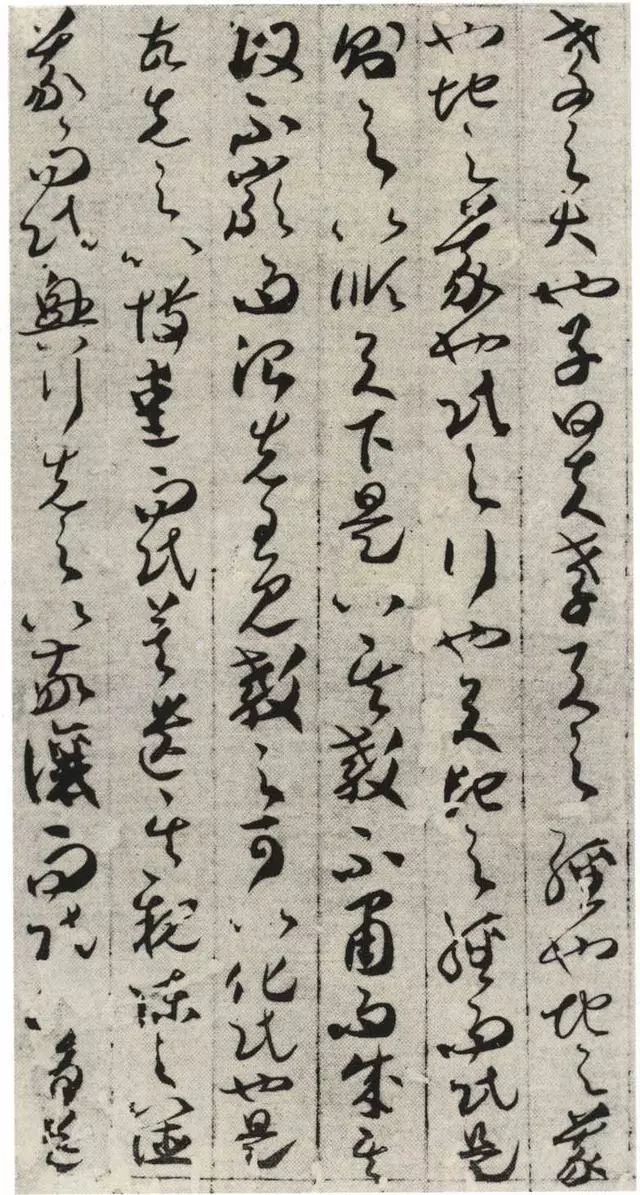 孝之大也子曰夫孝天之經也地之義
也地之義也民之行也天地之經而民是
則之以順天下是以其教不肅而成其
政不嚴而治先王見教之可以化民也是
故先之以博愛而民莫遺其親陳之以德
義而民興行先之以敬讓而民